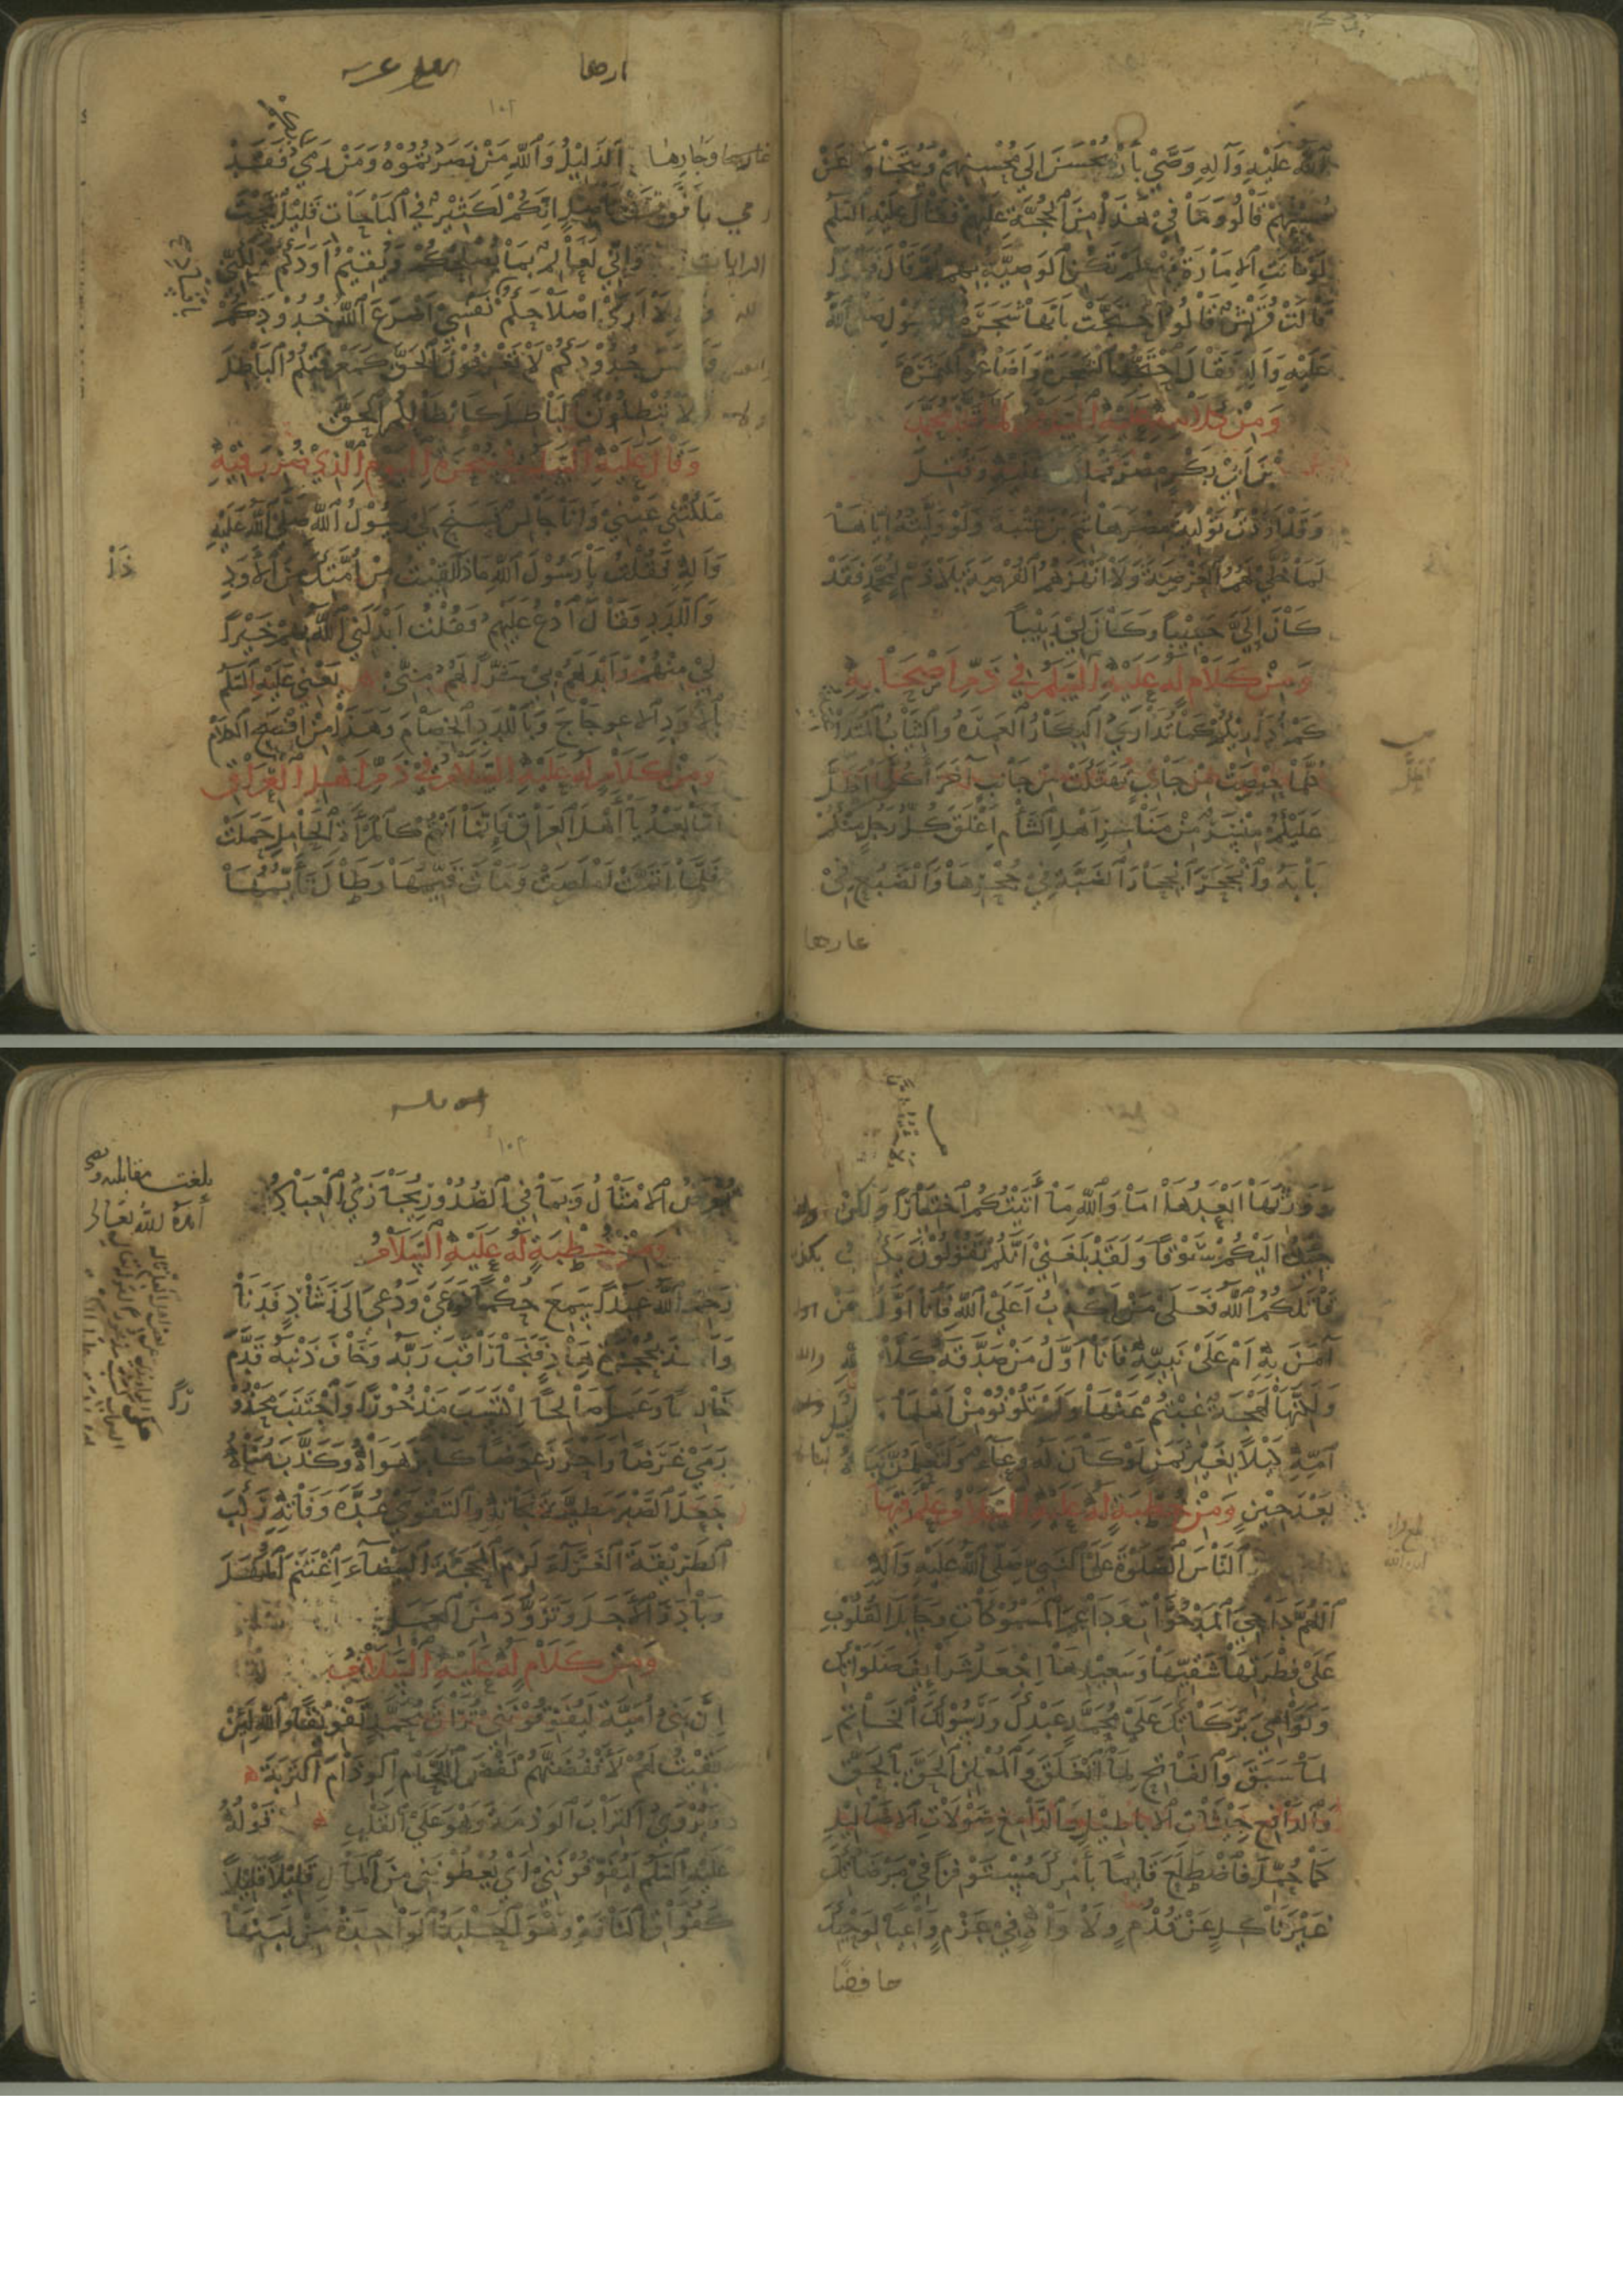 الله عَلَيْهِ وَآلِهِ وَصَّى بِأَنْ يُحْسَنَ إِلَى مُحْسِنِهِمْ وَيُتَجَاوَزَ عَنْ
مُسِيئِهِمْ قَالُوا وَمَا فِي هَذَا مِنَ الْحُجَّةِ عَلَيْهِمْ فَقَالَ عَلَيْهِ السَّلَمُ
لَوْ كَانَتِ الْإِمَارَةُ فِيهِمْ لَمْ تَكُنِ الْوَصِيَّةُ بِهِمْ ثُمَّ قَالَ
قَالَتْ قُرَيْشٌ قَالُوا احْتَجَّتْ بِأَنَّهَا شَجَرَةُ الرَّسُولِ صلى الله
عَلَيْهِ وَآلِهِ فَقَالَ احْتَجُّوا بِالشَّجَرَةِ وَأَضَاعُوا الثَّمَرَةَ
وَمِنْ كَلَامٍ لَهُ عَلَيْهِ السَّلَامُ لَمَّا قَلَّدَ مُحَمَّدَ
بْنَ أَبِي بَكْرٍ مِصْرَ فَمُلِكَتْ عَلَيْهِ وَقُتِلَ
وَقَدْ أَرَدْتُ تَوْلِيَةَ مِصْرَ هَاشِمَ بْنَ عُتْبَةَ وَلَوْ وَلَّيْتُهُ إِيَّاهَا
لَمَا خَلَّى لَهُمُ الْعَرْصَةَ وَلَا أَنْهَزَهُمُ الْفُرْصَةَ بِلَا ذَمٍّ لِمُحَمَّدٍ فَقَدْ
كَانَ إِلَيَّ حَبِيبًا وَكَانَ لِي رَبِيبًا
وَمِنْ كَلَامٍ لَهُ عَلَيْهِ السَّلَمُ فِي ذَمِّ أَصْحَابِهِ
كَمْ أُدَارِيكُمْ كَمَا تُدَارَى الْبِكَارُ الْعَمِدَةُ وَالثِّيَابُ الْمُتَدَا
كُلَّمَا حِيصَتْ مِنْ جَانِبٍ تَهَتَّكَتْ مِنْ جَانِبٍ آخَرَ أَكُلَّمَا أَظَلَّ
عَلَيْكُمْ مَنْسِرٌ مِنْ مَنَاسِرِ أَهْلِ الشَّأْمِ أَغْلَقَ كُلُّ رَجُلٍ مِنْكُمْ
بَابَهُ وَانْجَحَرَ انْجِحَارَ الضَّبَّةِ فِي جُحْرِهَا وَالضَّبُعِ فِي
الذَّلِيلُ وَاللَّهِ مَنْ نَصَرْتُمُوهُ وَمَنْ رَمَى فَقَدْ
إِنَّكُمْ لَكَثِيرٌ فِي الْبَاحَاتِ قَلِيلٌ تَحْتَ
الرايات وَإِنِّي لَعَالِمٌ بِمَا يُصْلِحُكُمْ وَيُقِيمُ أَوَدَكُمْ وَلَكِنِّي
لَا أَرَى إِصْلَاحَكُمْ نَفْسِي أَضْرَعَ اللَّهُ خُدُودَكُمْ
جُدُودَكُمْ لَا تَعْرِفُونَ الْحَقَّ كَمَعْرِفَتِكُمُ الْبَاطِلَ
لَا تُبْطِلُونَ الْبَاطِلَ كَإِبْطَالِكُمُ الْحَقَّ
وَقَالَ عَلَيْهِ السَّلَامُ فِي سُحْرَةِ الْيَوْمِ الَّذِي ضُرِبَ فِيهِ
مَلَكَتْنِي عَيْنِي وَأَنَا جَالِسٌ فَسَنَحَ لِي رَسُولُ اللَّهِ صَلَّى اللَّهُ عَلَيْهِ
وَآلِهِ فَقُلْتُ يَا رَسُولَ اللَّهِ مَاذَا لَقِيتُ مِنْ أُمَّتِكَ مِنَ الْأَوَدِ
وَاللَّدَدِ فَقَالَ ادْعُ عَلَيْهِمْ فَقُلْتُ أَبْدَلَنِي اللَّهُ بِهِمْ خَيْرًا
لِي مِنْهُمْ وَأَبْدَلَهُمْ بِي شَرًّا لَهُمْ مِنِّي يَعْنِي عَلَيْهِ السَّلَمُ
بِالْأَوَدِ الِاعْوِجَاجَ وَبِاللَّدَدِ الْخِصَامَ وَهَذَا مِنْ أَفْصَحِ الْكَلَامِ
وَمِنْ كَلَامٍ لَهُ عَلَيْهِ السَّلَامُ فِي ذَمِّ أَهْلِ الْعِرَاقِ
أَمَّا بَعْدُ يَا أَهْلَ الْعِرَاقِ فَإِنَّمَا أَنْتُمْ كَالْمَرْأَةِ الْحَامِلِ حَمَلَتْ
فَلَمَّا أَتَمَّتْ أَمْلَصَتْ وَمَاتَ قَيِّمُهَا وَطَالَ تَأَيُّمُهَا
وَوَرِثَهَا أَبْعَدُهَا أَمَا وَاللَّهِ مَا أَتَيْتُكُمُ اخْتِيَارًا وَلَكِنْ
جِئْتُ إِلَيْكُمْ سَوْقًا وَلَقَدْ بَلَغَنِي أَنَّكُمْ تَقُولُونَ يَكْذِبُ
قَاتَلَكُمُ اللَّهُ فَعَلَى مَنْ أَكْذِبُ أَعَلَى اللَّهِ فَأَنَا أَوَّلُ مَنْ
آمَنَ بِهِ أَمْ عَلَى نَبِيِّهِ فَأَنَا أَوَّلُ مَنْ صَدَّقَهُ كَلَّا
وَلَكِنَّهَا لَهْجَةٌ غِبْتُمْ عَنْهَا وَلَمْ تَكُونُوا مِنْ أَهْلِهَا
أُمِّهِ كَيْلًا بِغَيْرِ ثَمَنٍ لَوْ كَانَ لَهُ وِعَاءٌ وَلَتَعْلَمُنَّ نَبَأَهُ
بَعْدَ حِينٍ وَمِنْ خُطْبَةٍ لَهُ عَلَيْهِ السَّلَامُ عَلَّمَ فِيهَا
النَّاسَ الصَّلَوةَ عَلَى النَّبِيِّ صَلَّى اللَّهُ عَلَيْهِ وَآلِهِ
اللَّهُمَّ دَاحِيَ الْمَدْحُوَّاتِ وَدَاعِمَ الْمَسْمُوكَاتِ وَجَابِلَ الْقُلُوبِ
عَلَى فِطْرَتِهَا شَقِيِّهَا وَسَعِيدِهَا اجْعَلْ شَرَائِفَ صَلَوَاتِكَ
وَنَوَامِيَ بَرَكَاتِكَ عَلَى مُحَمَّدٍ عَبْدِكَ وَرَسُولِكَ الْخَاتِمِ
لِمَا سَبَقَ وَالْفَاتِحِ لِمَا انْغَلَقَ وَالْمُعْلِنِ الْحَقَّ بِالْحَقِّ
وَالدَّافِعِ جَيْشَاتِ الْأَبَاطِيلِ وَالدَّامِغِ صَوْلَاتِ الْأَضَالِيلِ
كَمَا حُمِّلَ فَاضْطَلَعَ قَائِمًا بِأَمْرِكَ مُسْتَوْفِزًا فِي مَرْضَاتِكَ
غَيْرَ نَاكِلٍ عَنْ قُدُمٍ وَلَا وَاهٍ فِي عَزْمٍ وَاعِيًا لِوَحْيِكَ
حافضًا
١٠٣
بلغت مقابلة
تُعْرَضُ الْأَمْثَالُ وَبِمَا فِي الصُّدُورِ يُجَازَى الْعِبَادُ
وَمِنْ خُطْبَةٍ لَهُ عَلَيْهِ السَّلَامُ
رَحِمَ اللَّهُ عَبْدًا سَمِعَ حُكْمًا فَوَعَى وَدُعِيَ إِلَى رَشَادٍ فَدَنَا
بِحُجْزَةِ هَادٍ فَنَجَا رَاقَبَ رَبَّهُ وَخَافَ ذَنْبَهُ قَدَّمَ
خَالِصًا وَعَمِلَ صَالِحًا اكْتَسَبَ مَذْخُورًا وَاجْتَنَبَ مَحْذُو
رَمَى غَرَضًا وَأَحْرَزَ عِوَضًا كَابَرَ هَوَاهُ وَكَذَّبَ مُنَاهُ
جَعَلَ الصَّبْرَ مَطِيَّةَ نَجَاتِهِ وَالتَّقْوَى عُدَّةَ وَفَاتِهِ رَكِبَ
الطَّرِيقَةَ الْغَرَّاءَ لَزِمَ الْمَحَجَّةَ الْبَيْضَاءَ اغْتَنَمَ الْمَهَلَ
وَبَادَرَ الْأَجَلَ وَتَزَوَّدَ مِنَ الْعَمَلِ
وَمِنْ كَلَامٍ لَهُ عَلَيْهِ السَّلَامُ
إِنَّ بَنِي أُمَيَّةَ لَيُفَوِّقُونَنِي تُرَاثَ مُحَمَّدٍ تَفْوِيقًا وَاللَّهِ لَئِنْ
بَقِيتُ لَهُمْ لَأَنْفُضَنَّهُمْ نَفْضَ اللَّحَّامِ الْوِذَامَ التَّرِبَةَ
وَيُرْوَى التُّرَابَ الْوَذِمَةَ وَهُوَ عَلَى الْقَلْبِ قَوْلُهُ
عَلَيْهِ السَّلَمُ لَيُفَوِّقُونَنِي أَيْ يُعْطُونَنِي مِنَ الْمَالِ قَلِيلًا قَلِيلًا
كَفُوَاقِ النَّاقَةِ وَهُوَ الْحَلْبَةُ الْوَاحِدَةُ مِنْ لَبَنِهَا